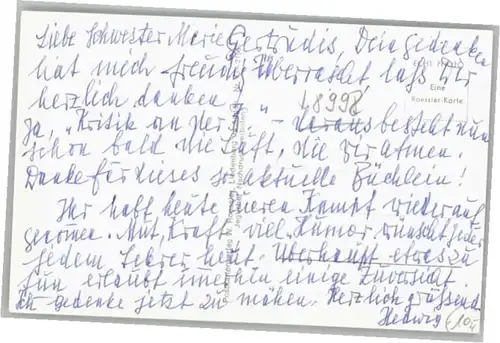 Liebe Schwester Marie Gertrudis, Dein Gedenken
hat mich freudig überrascht laß Dir
herzlich danken.
48998
Eine
Roessler-Karte
Ja, „Kritik an der " – daraus besteht nun
schon bald die Luft, die wir atmen.
Danke für dieses so aktuelle Büchlein!
Ihr habt heute Euren Kampf wieder auf
genommen. Mut, Kraft viel Humor wünscht jeder
jedem Lehrer heut. Überhaupt etwas zu
tun erlaubt immerhin einige Zuversicht.
gedenke jetzt zu mähen. Herzlich grüssend
Hedwig